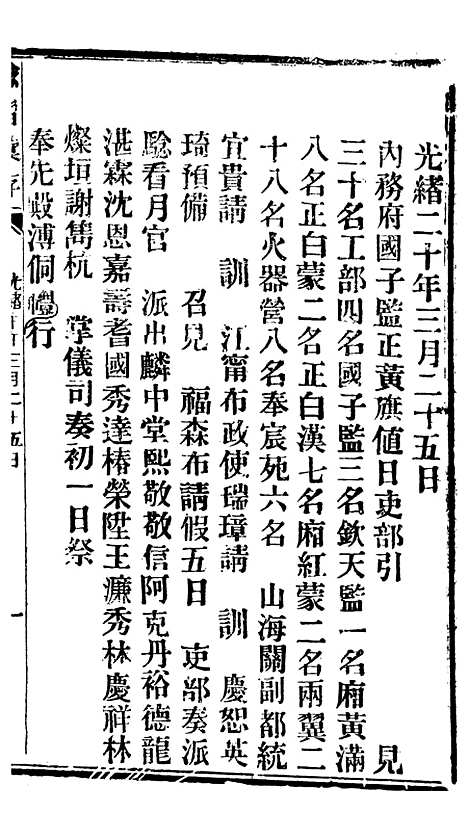 光緒二十年三月二十五日
內務府國子監正黃旗値日吏部引　　見
三十名工部四名國子監三名欽天監一名廂黃滿
八名正白蒙二名正白漢七名廂紅蒙二名兩翼二
十八名火器營八名奉宸苑六名　山海關副都統
宜貴請　訓　江甯布政使瑞璋請　訓　慶恕英
琦預備　召見　福森布請假五日　吏部奏派
驗看月官　派出麟中堂熙敬敬信阿克丹裕德龍
湛霖沈恩嘉壽耆國秀達椿榮陞王濂秀林慶祥林
燦垣謝雋杭　掌儀司奏初一日祭
奉先殿溥侗恭代行禮
光緒二十年三月二十五日
一